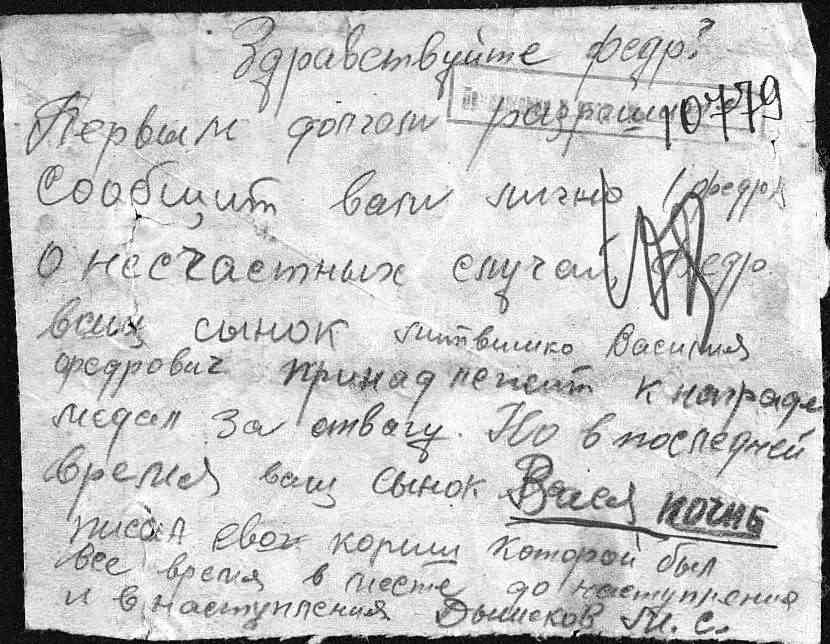 Здравствуйте федр?
Первым долгом разреши 10779
Сообщит вам лично (федр)
о несчастных случай, федр.
ваш сынок литвишко Василия
федрович принадлежит к награде
медал за отвагу. Но в последней
время ваш сынок Вася погиб
писал свой кориш которой был
все время в месте до наступления
и в наступления М. С.